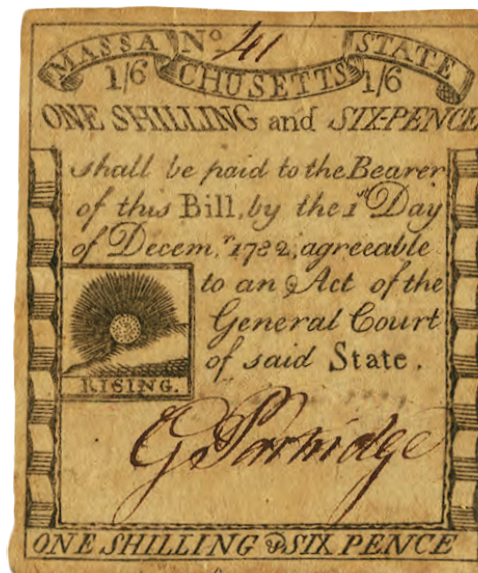 MASSA No. 41 STATE
1/6 CHUSETTS 1/6
ONE SHILLING and SIX-PENCE
shall be paid to the Bearer
of this Bill, by the 1st Day
of Decem.r 1782, agreeable
to an Act of the
General Court
of said State.
RISING.
G Partridge
ONE SHILLING & SIX PENCE